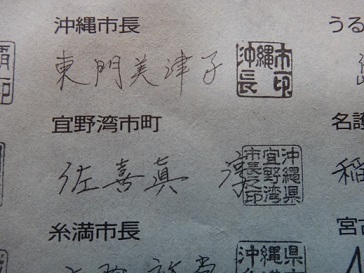 沖縄市長
東門美津子
沖縄市長印
宜野湾市町
佐喜眞 淳
沖縄県宜野湾市長之印
糸満市長
うる
名護
稲
宮古